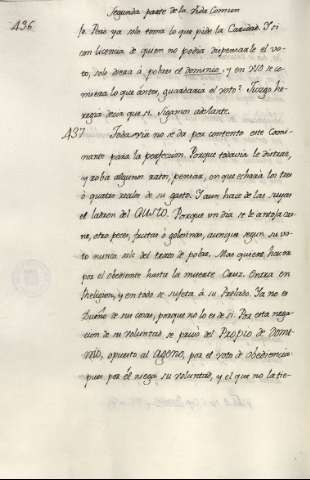 Segunda parte de la Vida Comun
436
lo. Pero ya solo toma lo que pide la Caridad. Y si
con licencia de quien no podia dispensarle el vo-
to, solo diera à pobres el dominio, y en uso se co-
miera lo que antes, guardaria el voto? Juzgo he-
regia decir que si. Sigamos adelante.
437 Todavia no se da por contento este Cami-
nante para la perfeccion. Porque todavia le distrae,
y roba algunos ratos, pensar, en que echarà los tres
ò quatro reales de su gasto. Y aun hace de las suyas
el ladron del GUSTO. Porque un dia se le antoja car-
ne, otro peces, frutas ò golosinas, aunque segun su vo-
to nunca sale del trato de pobre. Mas quiere, hacerse
por el obediente hasta la muerte Cruz. Entra en
Religion, y en todo se sujeta à su Prelado. Ya no es
Dueño de sus cosas, porque no lo es de si. Por esta nega-
cion de su voluntad se privò del PROPIO DE DOMI-
NIO, opuesto al AGENO, por el voto de obediencia
pues por èl niega su voluntad, y el que no la tie-